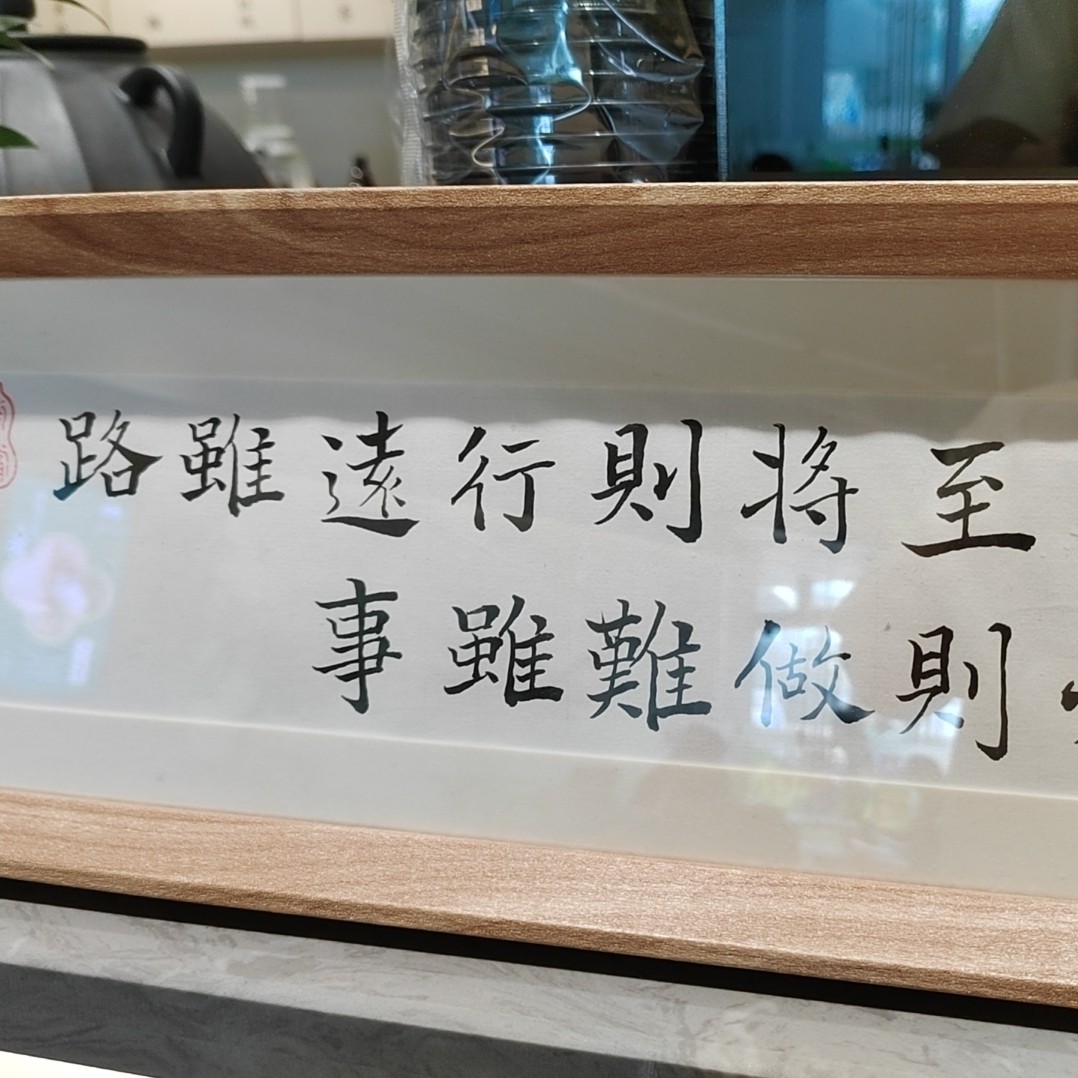 路雖遠行則將至
事雖難做則